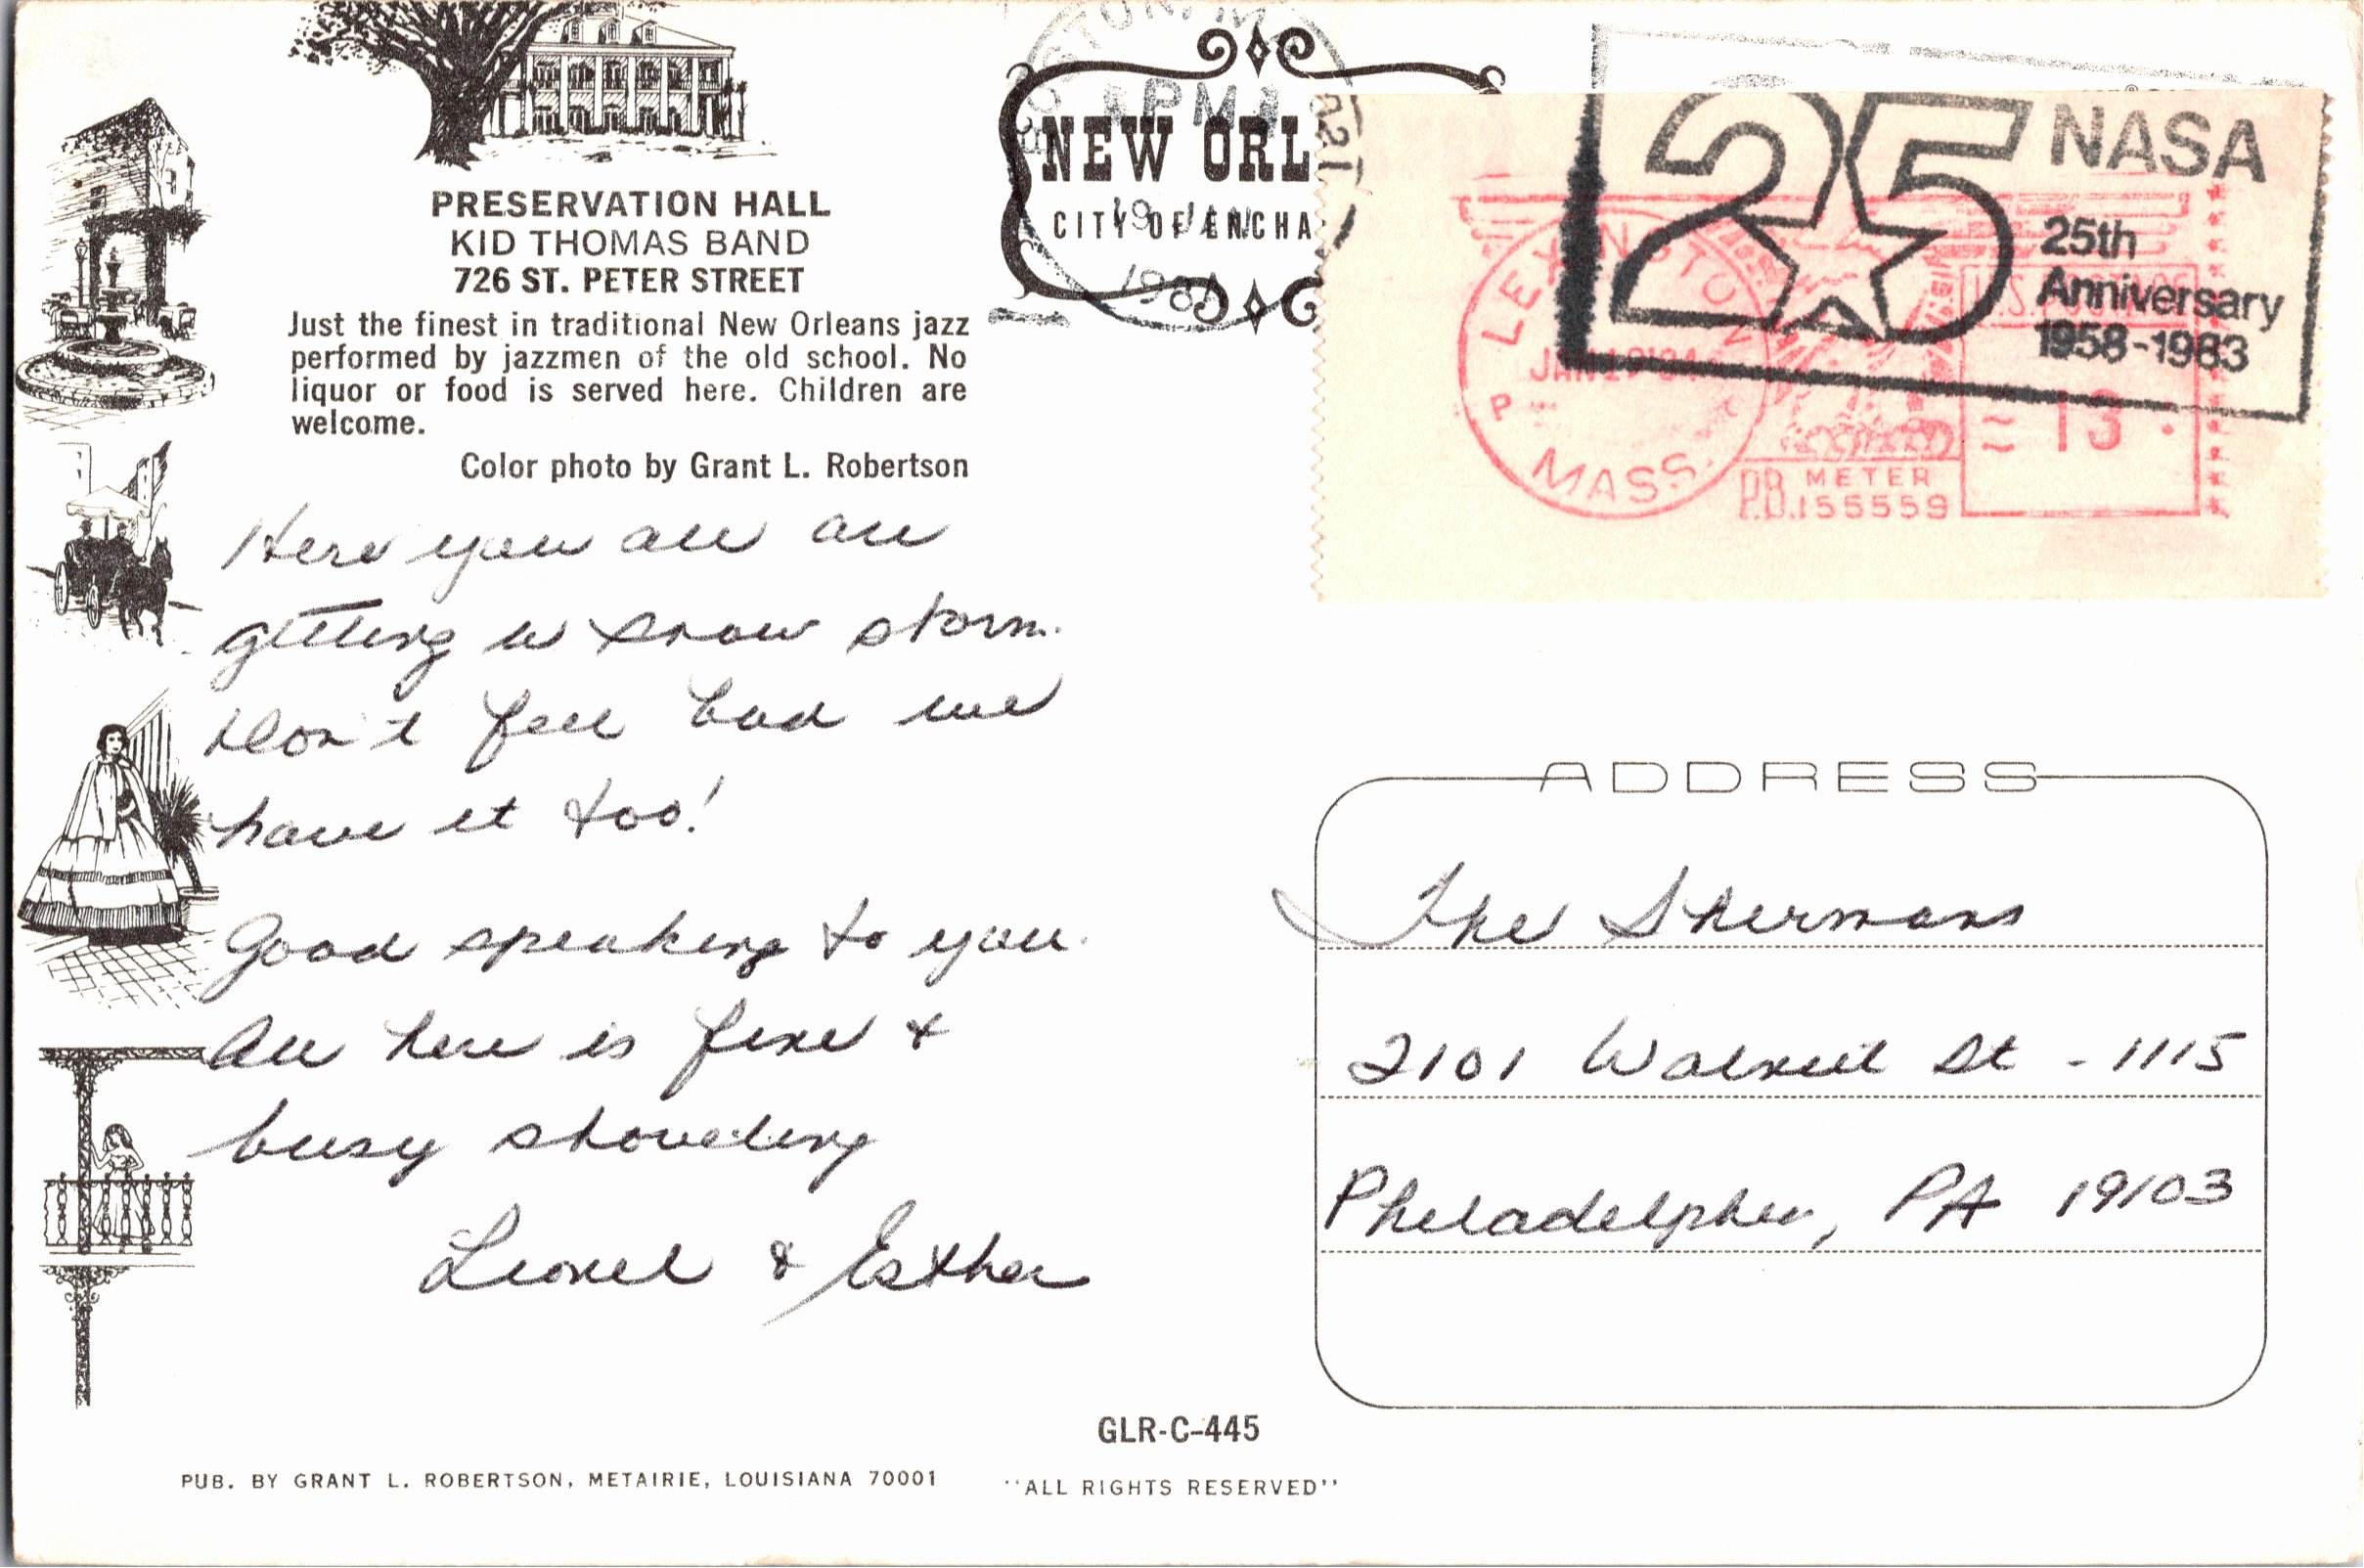 PRESERVATION HALL
KID THOMAS BAND
726 ST. PETER STREET
Just the finest in traditional New Orleans jazz
performed by jazzmen of the old school. No
liquor or food is served here. Children are
welcome.
Color photo by Grant L. Robertson
Here you all are
getting a snow storm.
Don't feel bad we
have it too!
Good speaking to you.
All here is fine &
busy shoveling
Lionel & Esther
NEW ORL
CITY OF ENCHA
PM
19 JAN
1984
25 NASA
25th
Anniversary
1958-1983
LEXINGTON
MASS.
U.S. POSTAGE
13
P.B. METER
155559
ADDRESS
The Shermans
2101 Walnut St - 1115
Philadelphia, PA 19103
GLR-C-445
PUB. BY GRANT L. ROBERTSON, METAIRIE, LOUISIANA 70001
"ALL RIGHTS RESERVED"